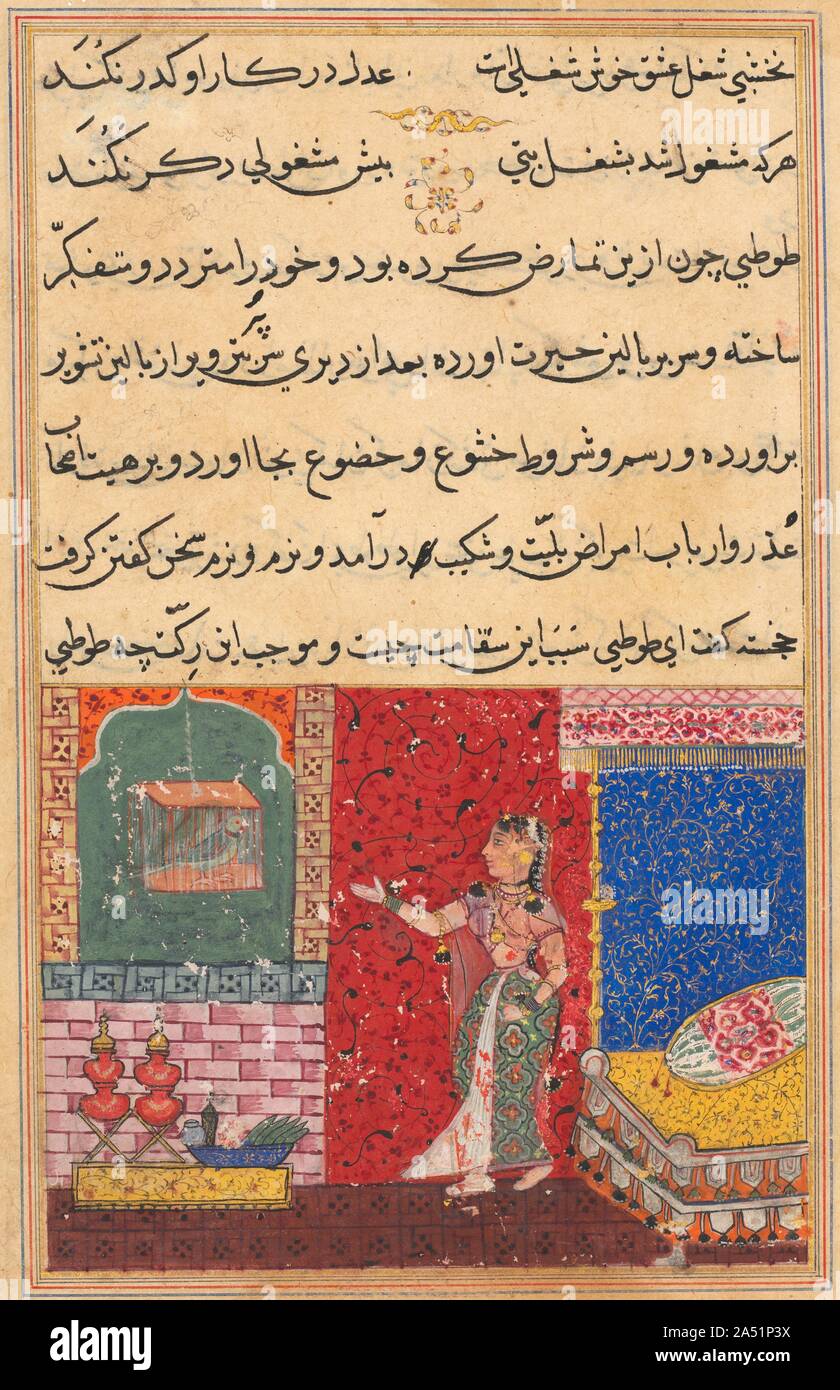 نخشبي شغل عشق خوش شغلي است عدل در كار او كدر نكند
هركه مشغول شد بشغل بتي بيش مشغولي دكر نكند
طوطي چون ازين تمارض كرده بود و خود را متردد و متفكر
ساخته و سر بر بالين حيرت اورده بعد از ديري سر از بالين تشوير
براورده و رسم و شروط خشوع و خضوع بجا اورد و بر هيت اصحاب
عذر و ارباب امراض بليت و شكيب درآمد و نرم و نرم سخن كفتن كرفت
خجسته كفت اي طوطي سبب اين سقامت چيست و موجب اين ركت چه طوطي
alamy
alamy
Image ID: 2A51P3X
www.alamy.com